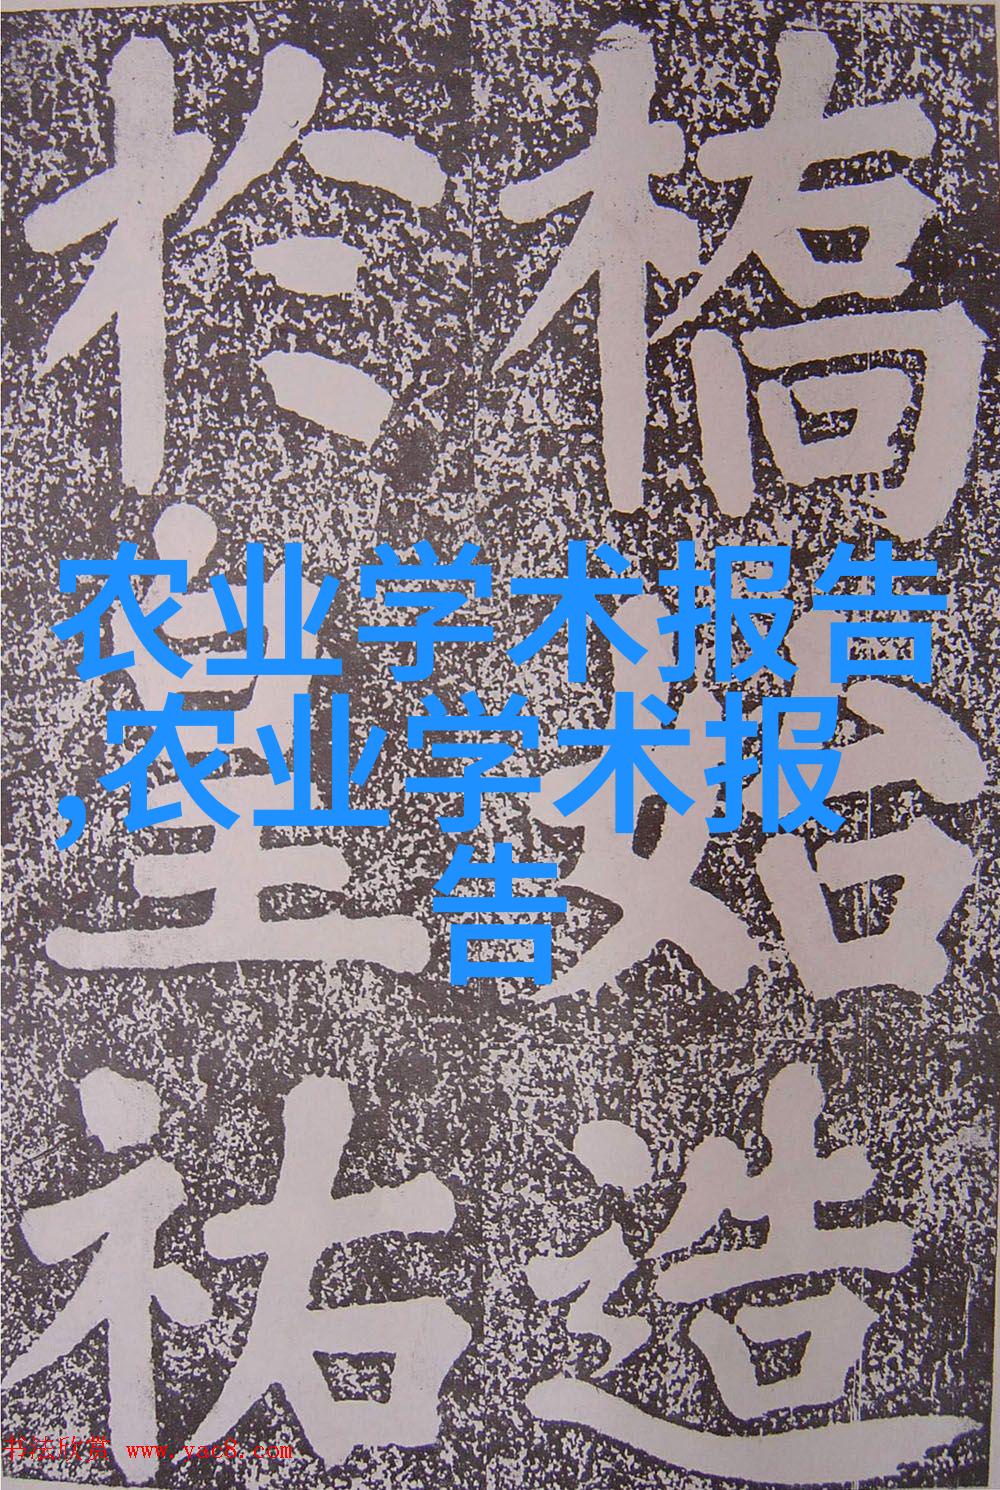 橋始造
於皇祐
农业学术报告
,农业学术报
告
书法欣赏 www.yac8.com